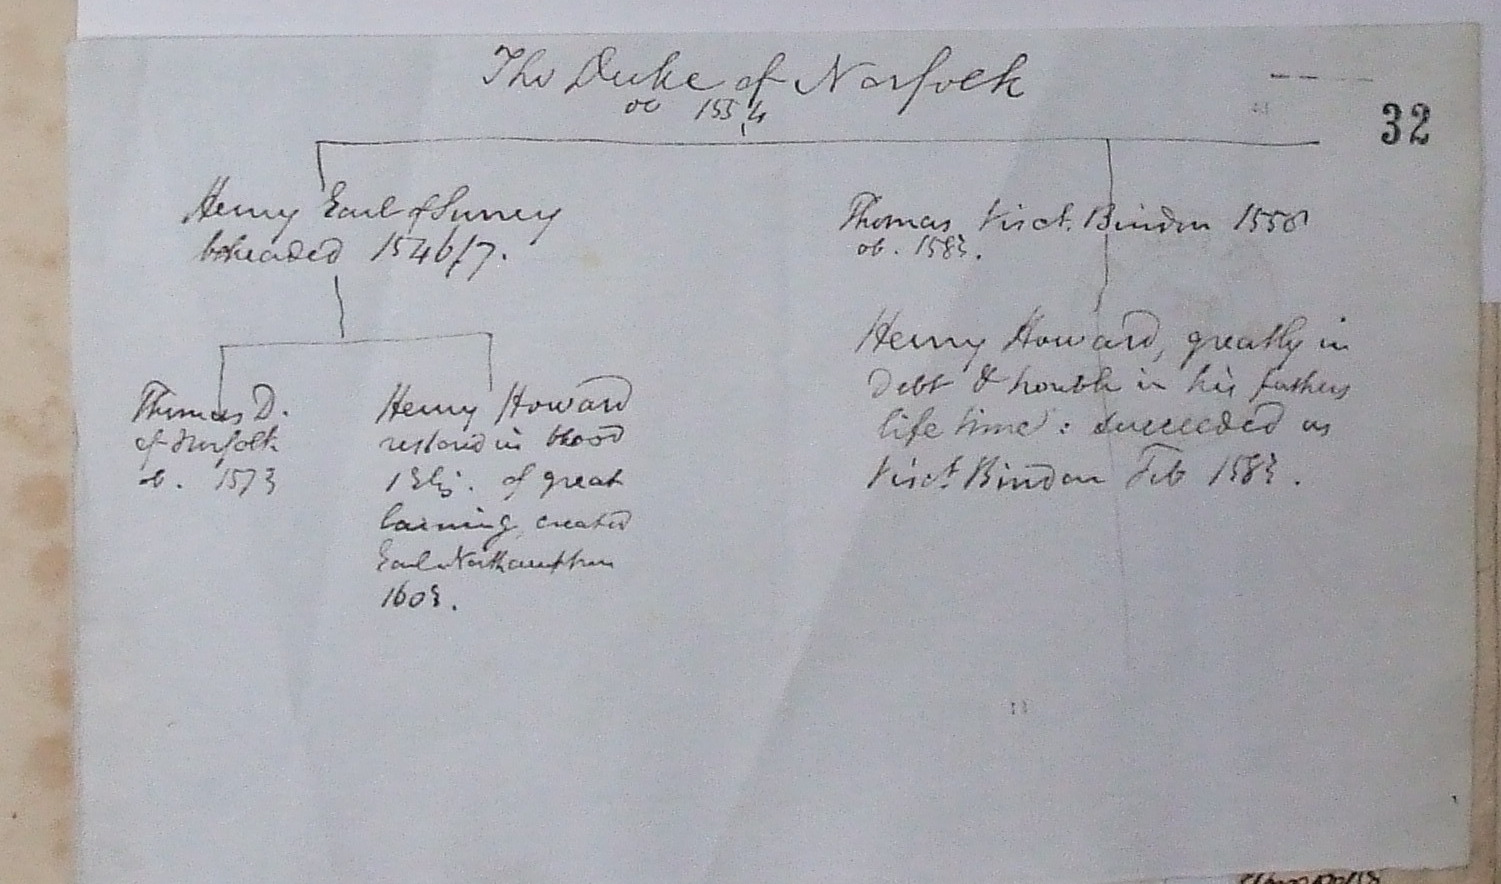 Tho Duke of Norfolk
ob 1554
32
Henry Earl of Surrey
beheaded 1546/7.
Thomas Visct. Bindon 1558
ob. 1582.
Henry Howard, greatly in
debt & trouble in his fathers
life time: succeeded as
Visct Bindon Feb 1582.
Thomas D.
of Norfolk
o. 1573
Henry Howard
restored in blood
1 Eliz. of great
learning, created
Earl Northampton
1603.